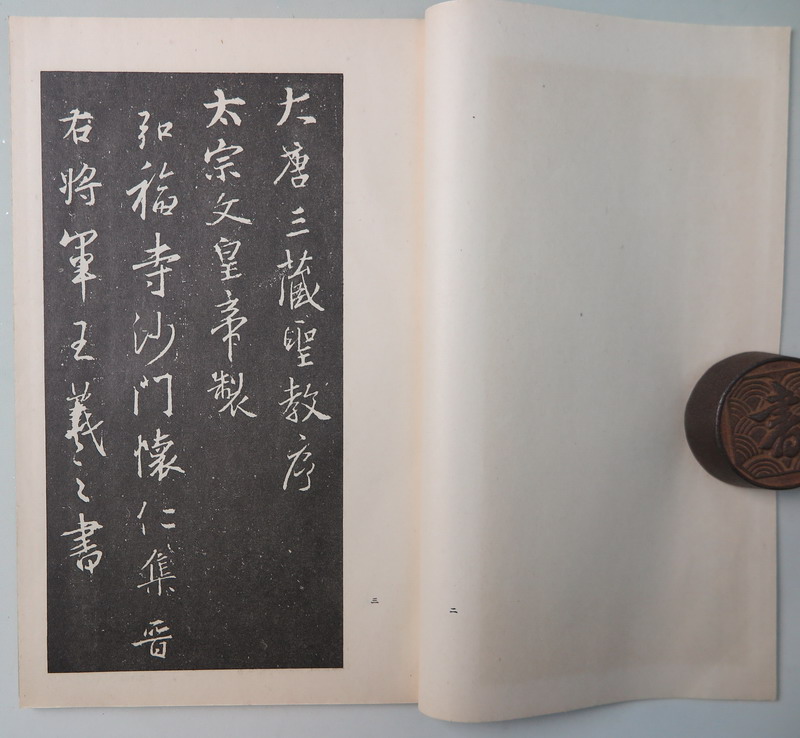 大唐三藏聖教序
太宗文皇帝製
弘福寺沙門懷仁集晉
右將軍王羲之書
三
二